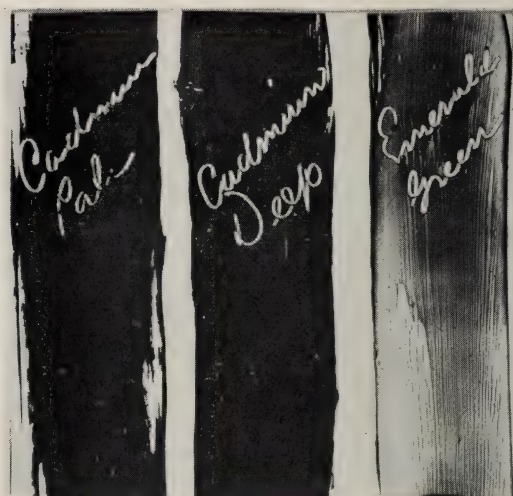 Cadmium
Pale
Cadmium
Deep
Emerald
Green